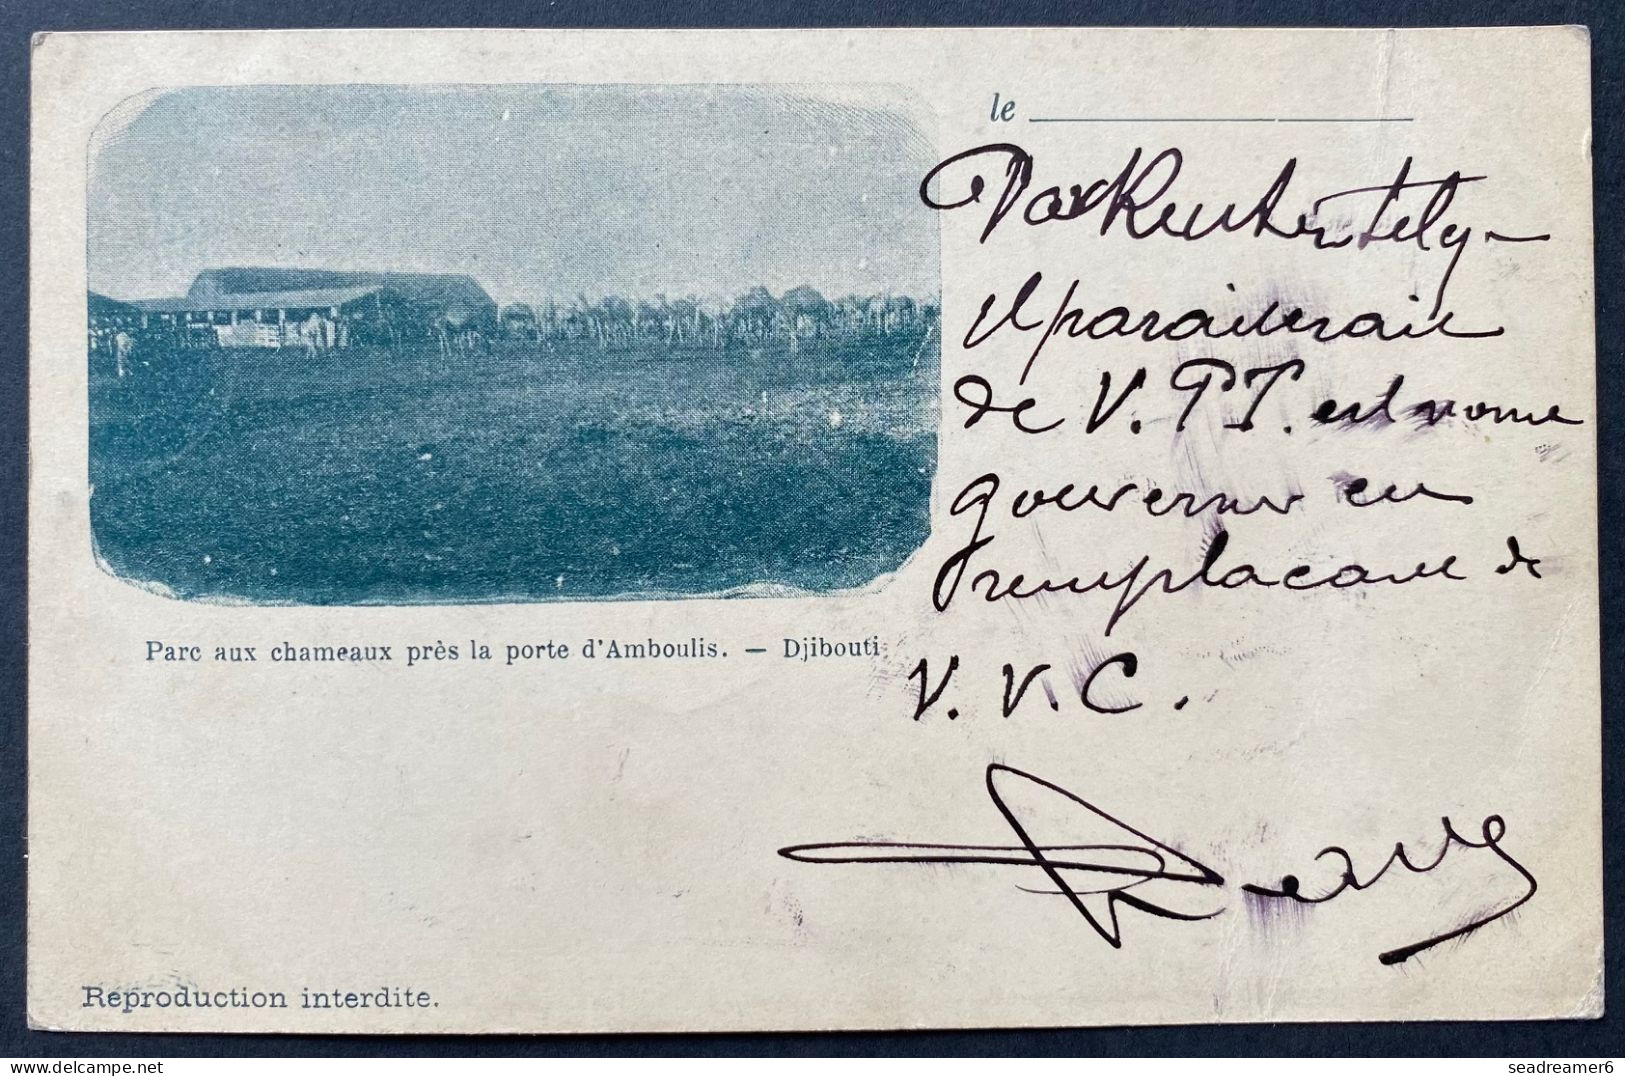 le
Par Reuter, telg -
il paraitrait
de V. PT. est nomé
gouverneur en
remplacant de
V. V. C.
Parc aux chameaux près la porte d'Amboulis. — Djibouti
Reproduction interdite.
delcampe.net
seadreamer6